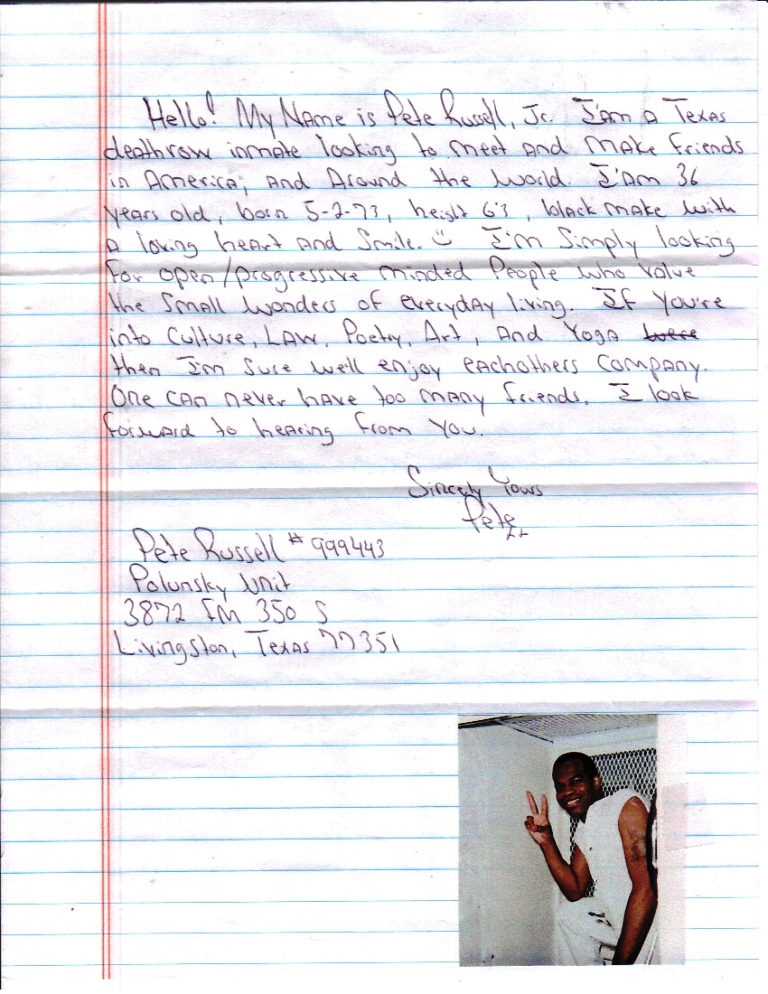 Hello! My Name is Pete Russell, Jr. I'am a Texas
deathrow inmate looking to meet and make friends
in America; and Around the world. I'am 36
years old, born 5-2-73, height 6'3, black make with
a loving heart and Smile. ☺ I'm Simply looking
for open/progressive minded People who value
the small wonders of everyday living. If you're
into Culture, Law, Poetry, Art, and Yoga were
then I'm sure we'll enjoy eachothers company.
One can never have too many friends. I look
forward to hearing from you.
Sincely Yours
Pete
Pete Russell # 999443
Polunsky Unit
3872 FM 350 S
Livingston, Texas 77351